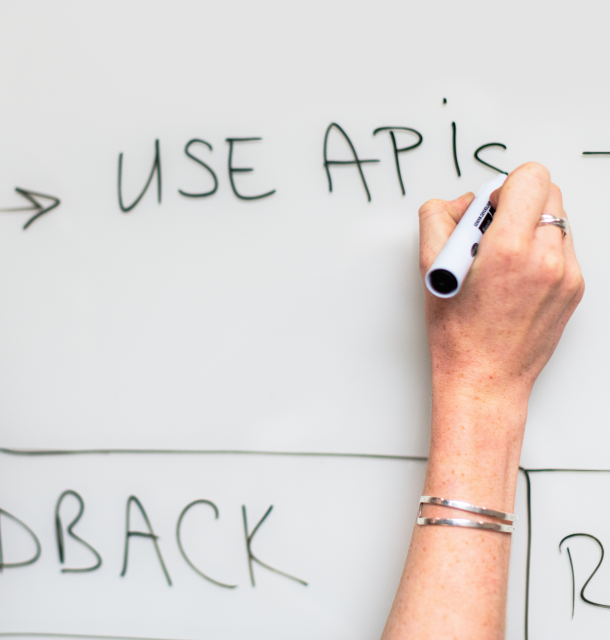 → USE APis
DBACK R